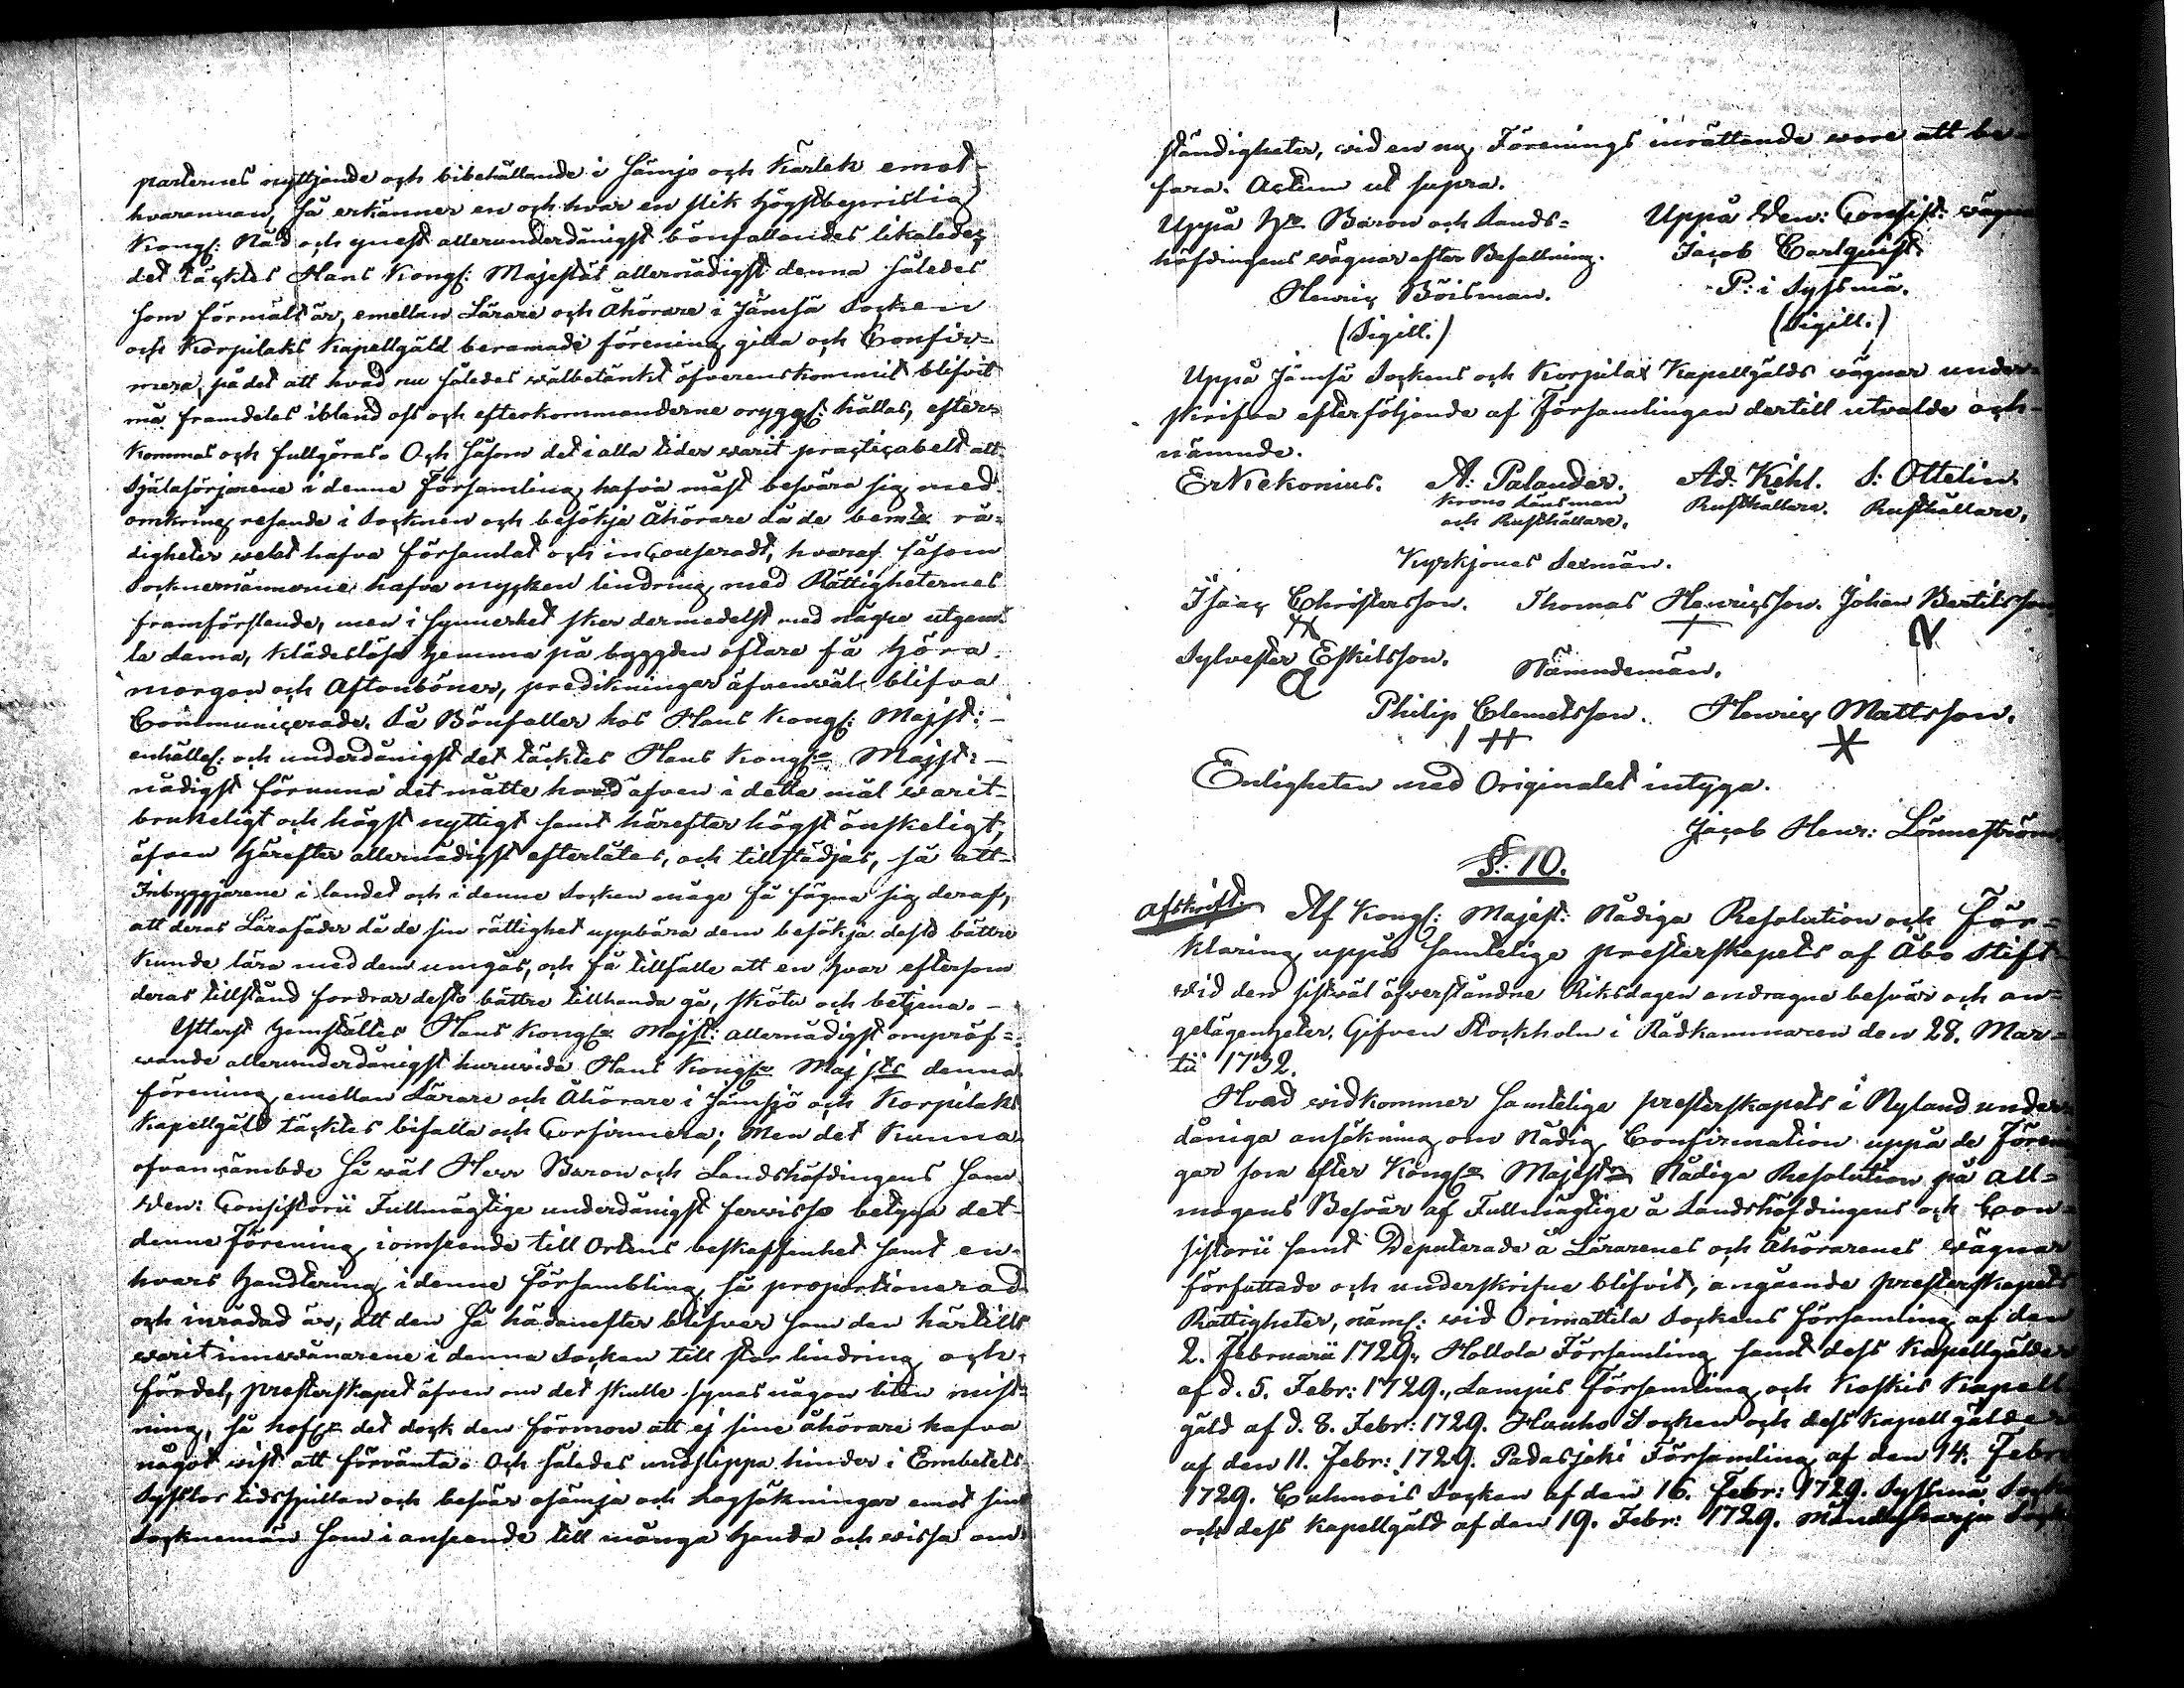 parternes nyttjande och bibehållande i Sämjo och Kärlek emot
hvarannan, Så erkänner en och hvar en slik Högstbeprislig
Kongl: Nåd och ynest allerunderdånigst bönfallandes likaledes
det täcktes Hans Kongl: Majestät allernådigst denna således
som förmält är, emellan Lärare och Åhörare i Jämsä Socken
och Korpilaks Kapellgäld beramade förening gilla och Confir=
mera, på det att hvad nu således wälbetänkt öfverenskommit blifvit
må framdeles ibland oss och efterkommanderne oryggl: hållas, efter=
kommas och fullgöras. Och såsom det i alla tider warit practicabelt att
Själasörjarene i denne Församling hafva måst besvära sig med
omkring resande i Socknen och besökja Åhörare då de bemte rä=
digheter velat hafva församlat och incasseradt, hvaraf såsom
Socknemännerne hafva mycken lindring med Rättigheternes
framförslende, men i synnerhet sker dermedelst med någre utgam=
la Lama, klädeslösa hemma på byggden oftare få höra
morgon och Aftonböner, predikningar äfvenwäl blifva
Communicerade. Så Bönfaller hos Hans Kongl: Majst: —
enhällel: och underdånigst det täcktes Hans Kongl:e Majst: —
nådigst förunna det måtte hvad äfven i detta mål warit
brukeligt och högst nyttigt samt härefter högst önskeligt,
äfven härefter allernådigst efterlåtes, och tillstädjas, så att
Inbyggjarene i landet och i denne Socken måge få fägna sig deraf,
att deras Lärafäder då de sin rättighet uppbära dem besökja desto bättre
Kunde lära med dem umgås, och få tillfälle att en hvar eftersom
deras tillstånd fordrar desto bättre tillhanda gå, sköta och betjena. —
Ytterst hemställes Hans Kongl:e Majst: allernådigst ompröf=
vande allerunderdånigst huruvida Hans Kongl:e Majsts denna
förening emellan Lärare och Åhörare i Jämsjö och Korpilaks
Kapellgäld täcktes bifalla och Confirmera; Men det kunna
ofvannämbde Så wäl Herr Baron och Landshöfdingens som
Wen: Consistorii Fullmägtige underdånigst ferwisso betyga det
denne Förening i omseende till Ortens beskaffenhet samt en
hvars Handtering i denne Försambling så proportionerad
och inrådad är, att den Så hädanefter blifver som den härtills
warit innewånarene i denna Socken till stor lindring och
fördel, presterskapet äfven om det skulle synas någon liten mist=
ning, så haf:r det dock den förmon att ej sine åhörare hafva
något wist att förvänta. Och således undslippa hinder i Embetets
Sysslor tidsspillan och besvär osämja och lagsökningar emot sine
Sockneman som i anseende till många Handa och wissa om
ständigheter, vid en ny Förenings inrättande wore att be=
fara. Actum ut supra.
Uppå Hr Baron och Lands= Uppå Wen: Consist: wägnar
höfdingens wägnar efter Befallning. Jacob Carlquist
Henric Böisman. P: i Syssmä.
(Sigill.) (Sigill.)
Uppå Jämsä Sockens och Korpilax Kapellgälds wägnar under=
skrifva efterföljande af Församlingen dertill utvalde och
nämnde.
Er Kekonius. A: Palander. Ad: Kihl. S: Ottelin
Krono Länsman Rusthållare. Rusthållare.
och Rusthållare.
Kyrkjones Sexmän.
Isaac Christersson. Thomas Henricsson. Johan Bertilsson
Sylvester Eskilsson. Nämndemän.
Philip Clemetsson. Henric Mattsson.
Enligheten med Originalet intyga.
Jacob Henr: Lönneström
§. 10.
Afskrift. Af Kongl: Majest: Nådiga Resolution och För=
klaring uppå samtelige presterskapets af Åbo Stift
wid den sistwäl öfverståndne Riksdagen andragne besvär och an=
gelägenheter. Gifven Stockholm i Rådkammaren den 28. Mar=
tii 1732.
Hvad widkommer samtelige presterskapets i Nyland under=
dåniga ansökning om Nådig Confirmation uppå de Förenin
gar som efter Kongl:e Majest:s Nådiga Resolution på All=
mogens Besvär af Fullmägtige å Landshöfdingens och Con=
sistorii samt Deputerade å Lärarenes och Åhörarenes wägnar
författade och underskrifne blifvit, angående presterskapets
Rättigheter, näml: wid Orimattila Sockens församling af den
2. Februarii 1729., Hollola Församling samt dess Kapellgälder
af d. 5. Febr: 1729., Lampis Församling och Koskis Kapell
gäld af d. 8. Febr: 1729. Hauho Socken och dess Kapellgälder
af den 11. Febr: 1729. Padasjoki Församling af den 14. Febr
1729. Culmois Socken af den 16. Febr: 1729. Syssmä Socken
och dess Kapellgäld af den 19. Febr: 1729. Mändyharju Sock